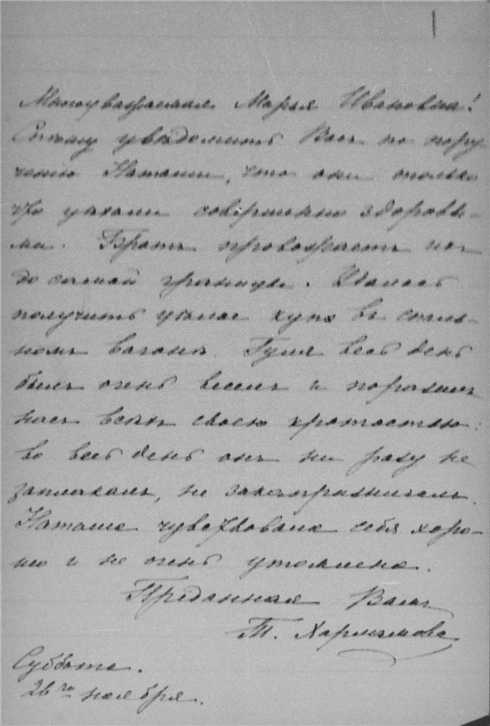 Многоуважаемая Марья Ивановна!
Спешу уведомить Васъ по пору-
ченію Наташи, что они только
что уѣхали совершенно здоровы-
ми. Братъ провожаетъ ихъ
до самой границы. Удалось
получить цѣлое купэ въ спаль-
номъ вагонѣ. Гуля весь день
былъ очень веселъ и поразилъ
насъ всѣхъ своею кротостью:
во весь день онъ ни разу не
заплакалъ, не закапризничалъ.
Наташа чувствовала себя хоро-
шо и не очень утомлена.
Преданная Вамъ
Т. Харламова
Суббота.
26го ноября.